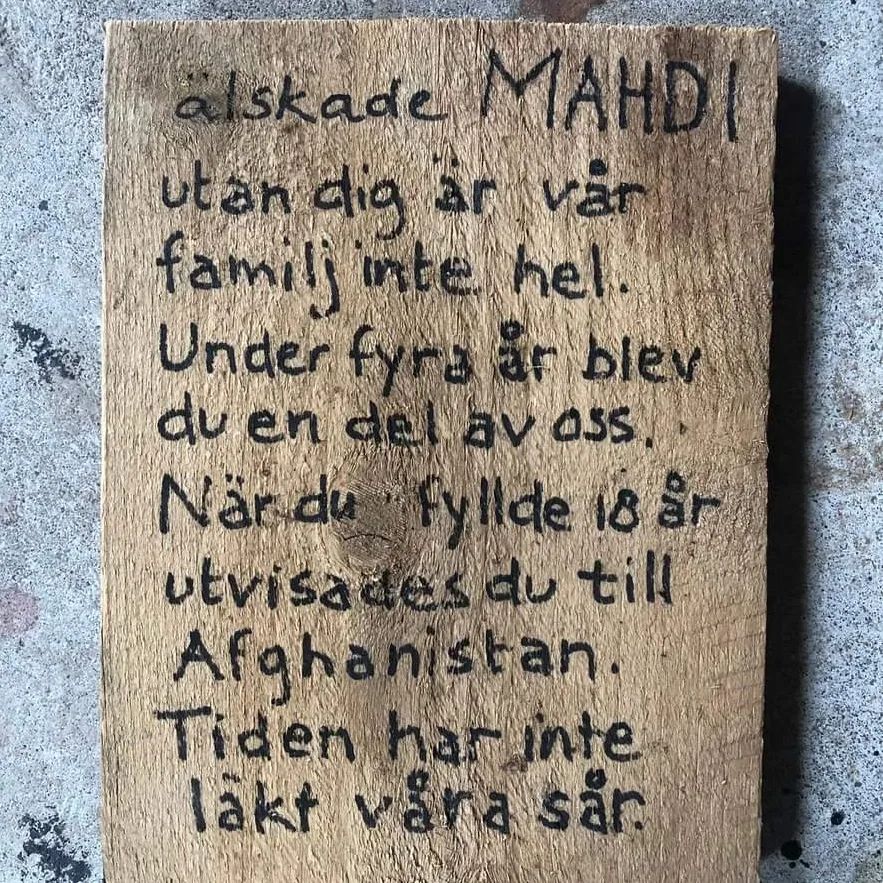 älskade MAHDI
utan dig är vår
familj inte hel.
Under fyra år blev
du en del av oss.
När du fyllde 18 år
utvisades du till
Afghanistan.
Tiden har inte
läkt våra sår.